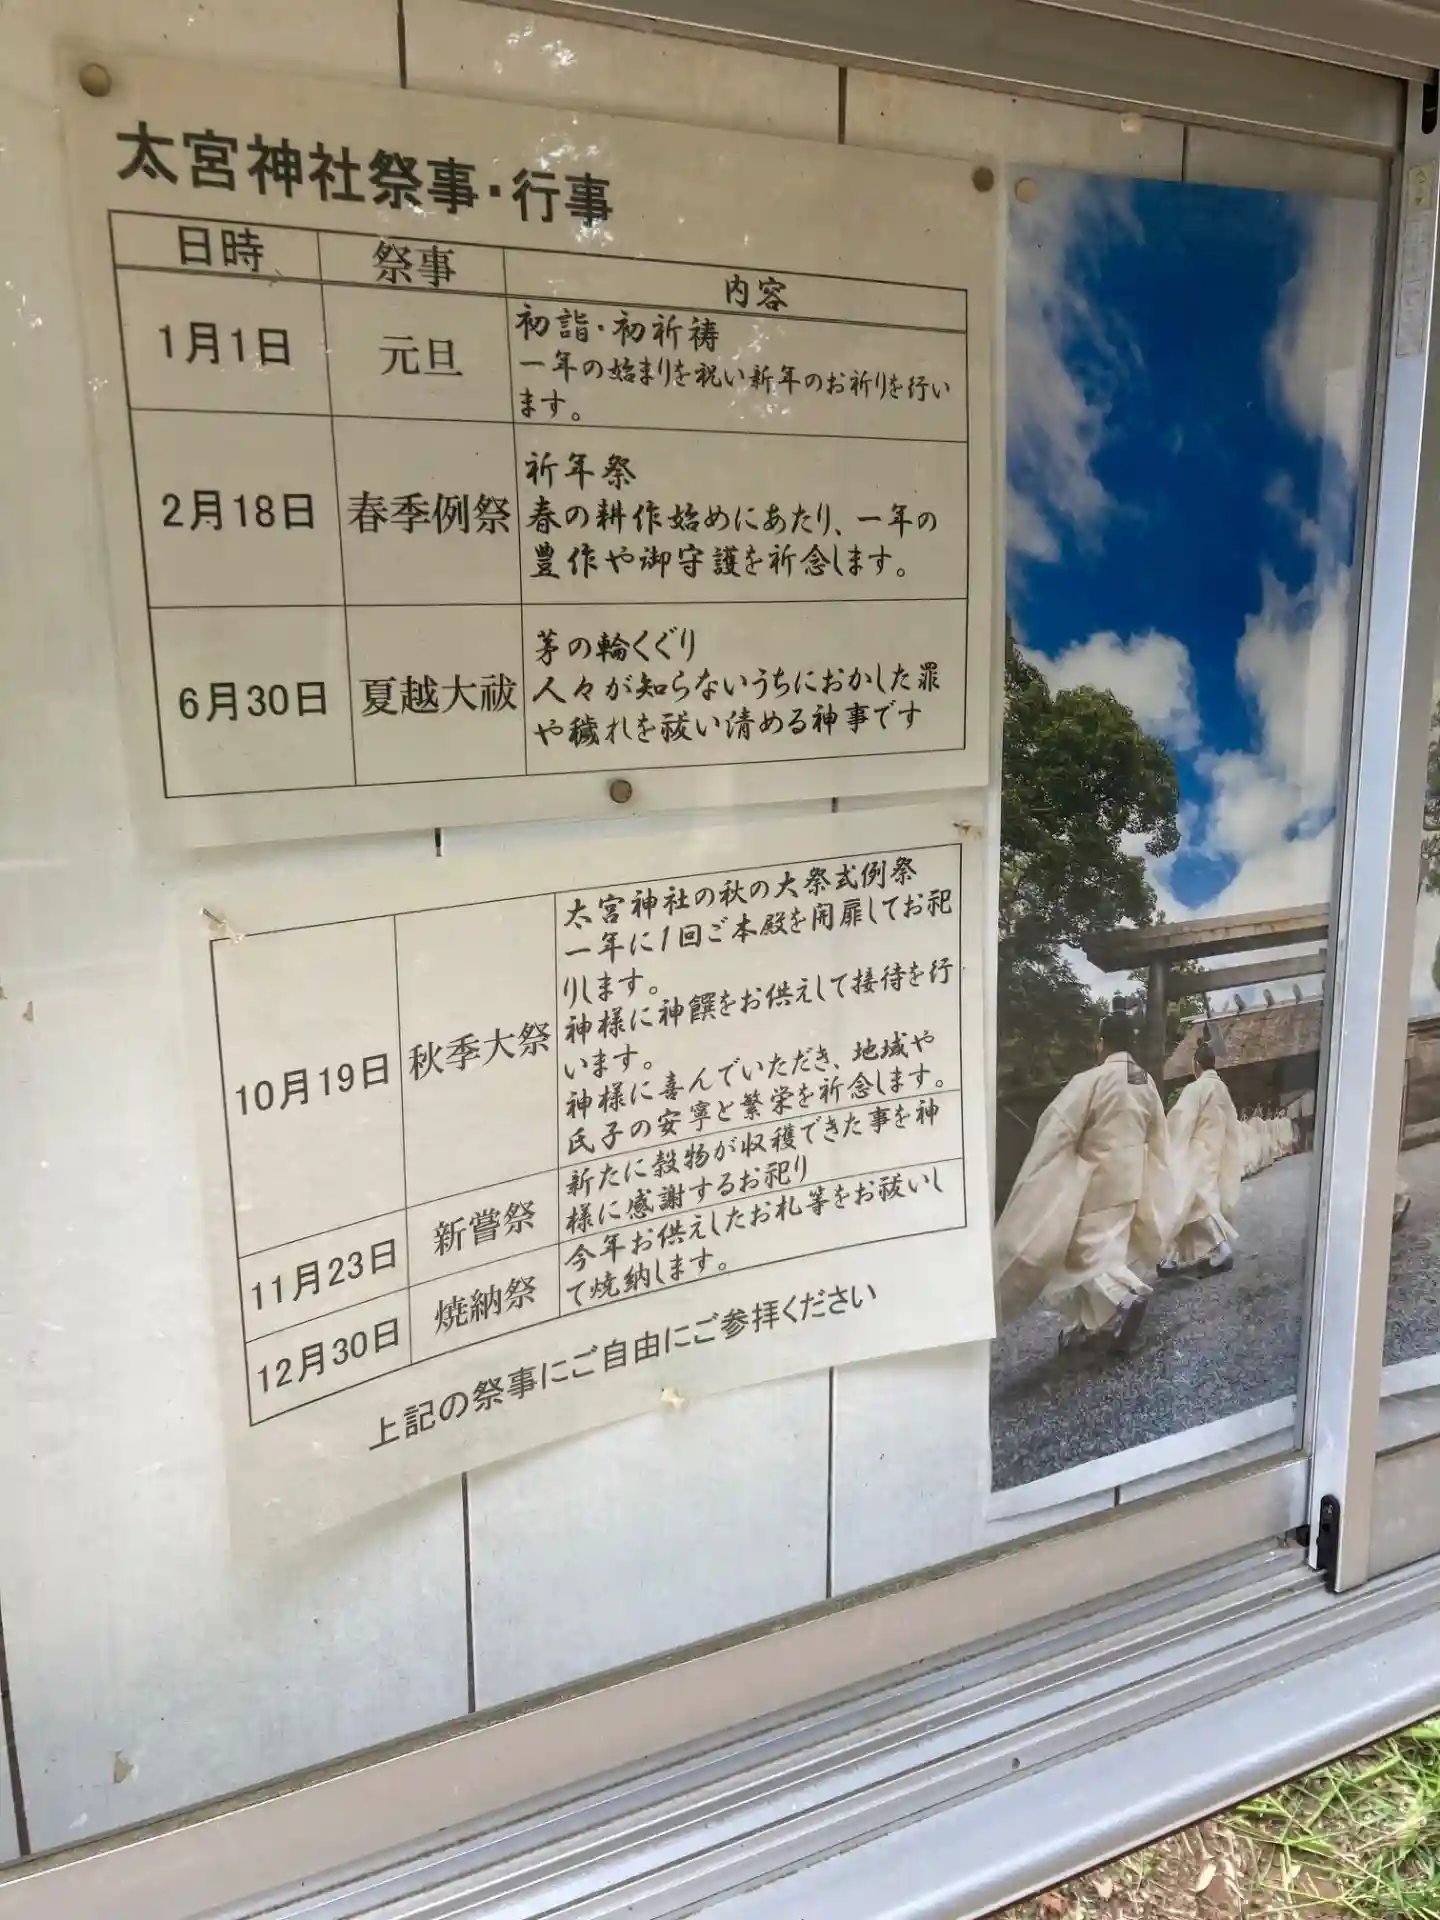 太宮神社祭事・行事
日時 祭事 内容
1月1日 元旦 初詣・初祈祷
一年の始まりを祝い新年のお祈りを行い
ます。
2月18日 春季例祭 祈年祭
春の耕作始めにあたり、一年の
豊作や御守護を祈念します。
6月30日 夏越大祓 茅の輪くぐり
人々が知らないうちにおかした罪
や穢れを祓い清める神事です
10月19日 秋季大祭 太宮神社の秋の大祭式例祭
一年に1回ご本殿を開扉してお祀
りします。
神様に神饌をお供えして接待を行
います。
神様に喜んでいただき、地域や
氏子の安寧と繁栄を祈念します。
11月23日 新嘗祭 新たに穀物が収穫できた事を神
様に感謝するお祀り
12月30日 焼納祭 今年お供えしたお札等をお祓いし
て焼納します。
上記の祭事にご自由にご参拝ください